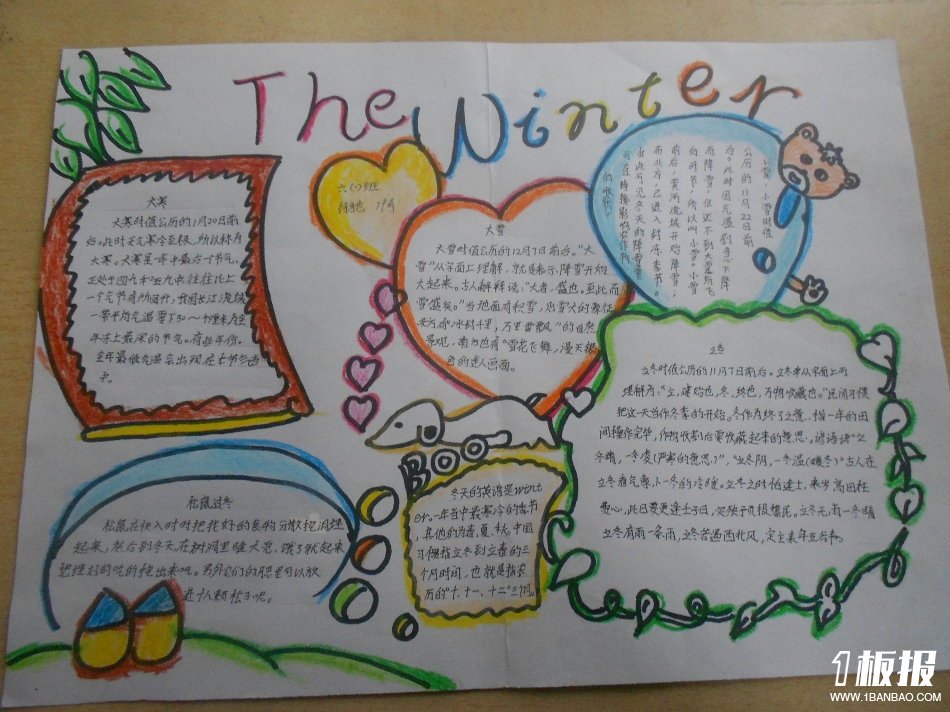 The Winter
六(1)班
大寒
大寒时值公历的1月20日前
后。此时天气寒冷至极,所以称为
大寒。大寒是一年中最后一个节气。
正处于四九和五九中,往往比上
一个节有所回升,我国长江流域
一带平均气温零下
年冻土最深的节气。有些年份,
全年最低气温会出现在大节气内
大雪
大雪时值公历的12月7日前后。“大
雪”从字面上理解,就是表示,降雪开始
大起来。古人解释说:“大者,盛也。至此而
雪盛矣。”当地面有积雪,
北方有“冰封千里,万里雪飘”的自然
景观,南方也有“雪花飞舞,漫天银
色的迷人画面。
小雪,小雪时值
公历的11月22日前
后。此时因气温剧多以下降
而降雪,但还不到大雪纷飞
的时节,所以叫小雪。小雪
前后,黄河流域开始降雪;
而北方,已进入封冻季节。
由此可见冬天的降雪量
可直接影响农作物
的收获。
立冬
立冬时值公历的11月7日前后。立冬单从字面上的
理解为:“立,建始也,冬,终也,万物收藏也。”民间习惯
把这一天当作冬季的开始。冬作为终了之意,指一年的田
间操作完毕,作物收割后要收藏起来的意思。谚语语“立
冬晴,一冬凌(严寒的意思)”,“立冬阴,一冬温(暖冬)”古人在
费心,此日要更
立冬有雨一条雨,立冬若遇西北风,定主来年五谷丰。
BOO
冬天的英语是wint
er。一年当中最寒冷的季节
,其他的为春,夏,秋。中国
习惯指立冬到立春的三
个月时间,也就是指农
历的“十、十一、十二”三个月。
松鼠过冬
松鼠在快入冬时把找好的食物分散挖洞埋
起来,然后到冬天在树洞里睡大觉,饿了就起来
把埋好的吃的挖出来吃。另外它们的腮里可以放
进十八颗松子呢。
1板报
WWW.1BANBAO.COM